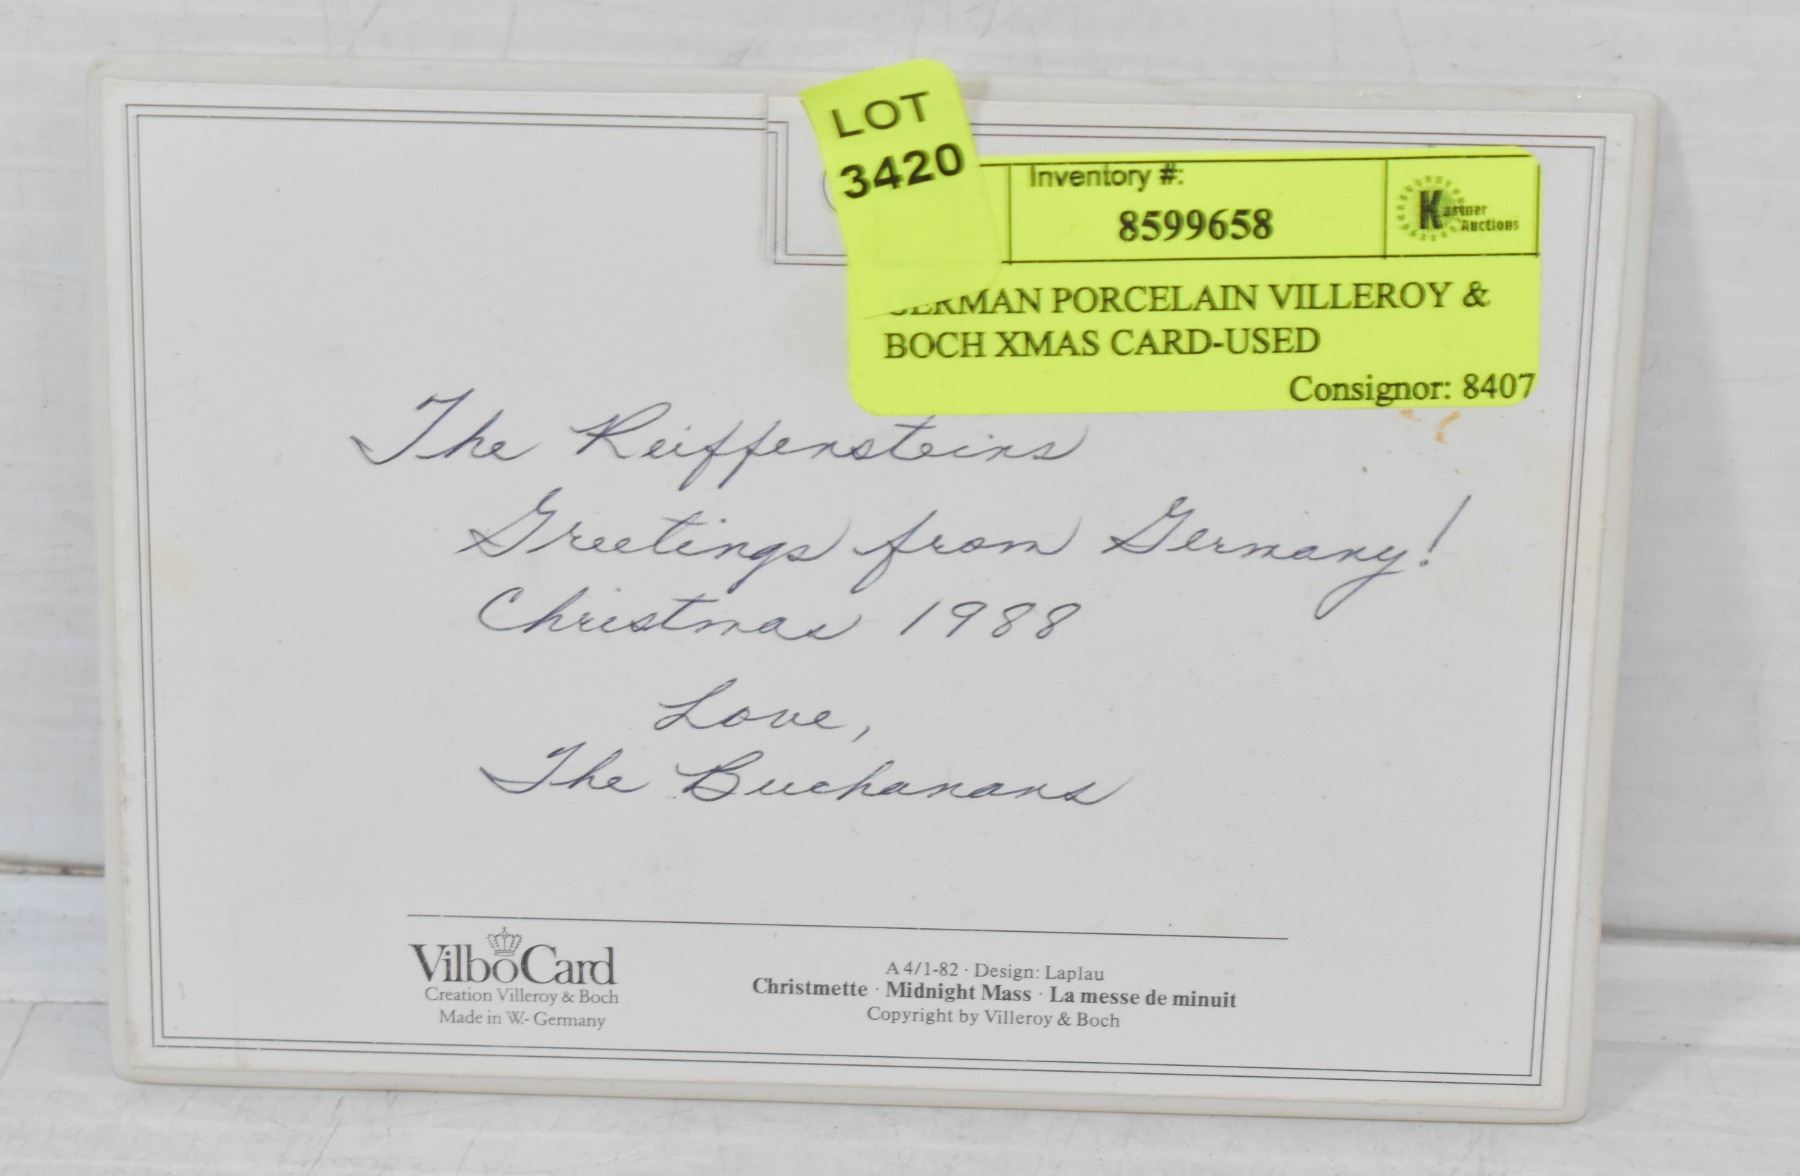 LOT
3420
Inventory #:
8599658
Kastner
Auctions
GERMAN PORCELAIN VILLEROY &
BOCH XMAS CARD-USED
Consignor: 8407
The Reiffensteins
Greetings from Germany!
Christmas 1988
Love,
The Buchanans
VilboCard
Creation Villeroy & Boch
Made in W.-Germany
A 4/1-82 · Design: Laplau
Christmette · Midnight Mass · La messe de minuit
Copyright by Villeroy & Boch